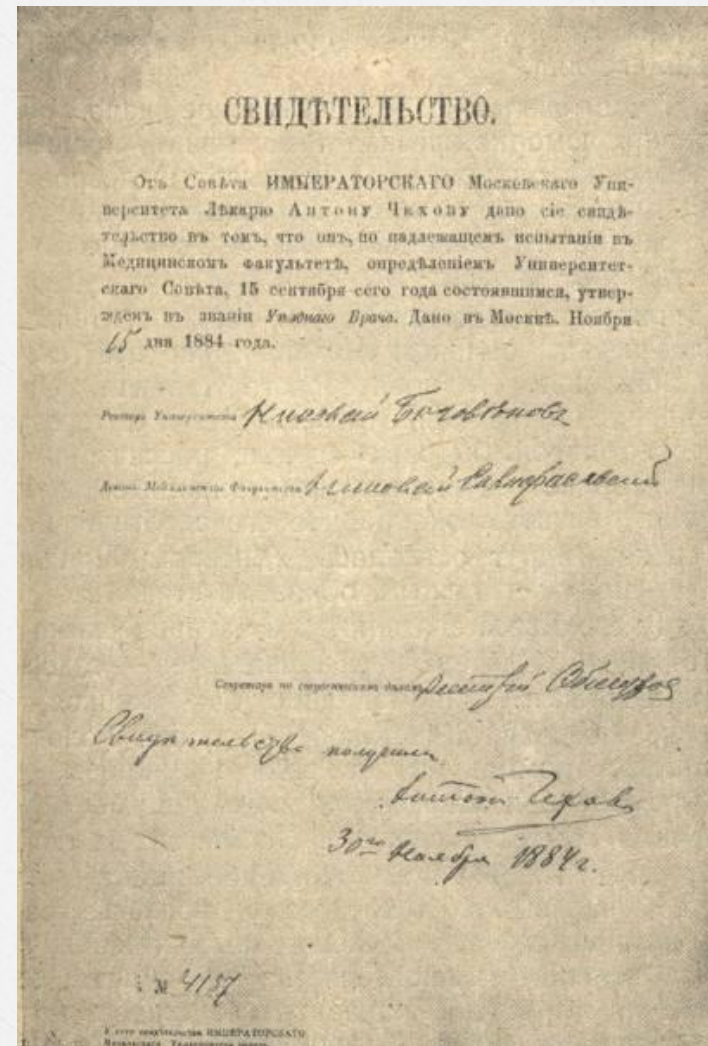 СВИДѢТЕЛЬСТВО.
Отъ Совѣта ИМПЕРАТОРСКАГО Московскаго Уни-
верситета Лѣкарю Антону Чехову дано сіе свидѣ-
тельство въ томъ, что онъ, по надлежащемъ испытаніи въ
Медицинскомъ Факультетѣ, опредѣленіемъ Университет-
скаго Совѣта, 15 сентября сего года состоявшимся, утвер-
жденъ въ званіи Уѣзднаго Врача. Дано въ Москвѣ. Ноября
15 дня 1884 года.
Ректоръ Университета Николай Боголѣповъ
Деканъ Медицинскаго Факультета Николай
Секретарь по студенческимъ дѣламъ
Свидѣтельство получилъ
Антонъ Чеховъ
30го Ноября 1884 г.
№ 4187
ИМПЕРАТОРСКАГО
Московскаго Университета